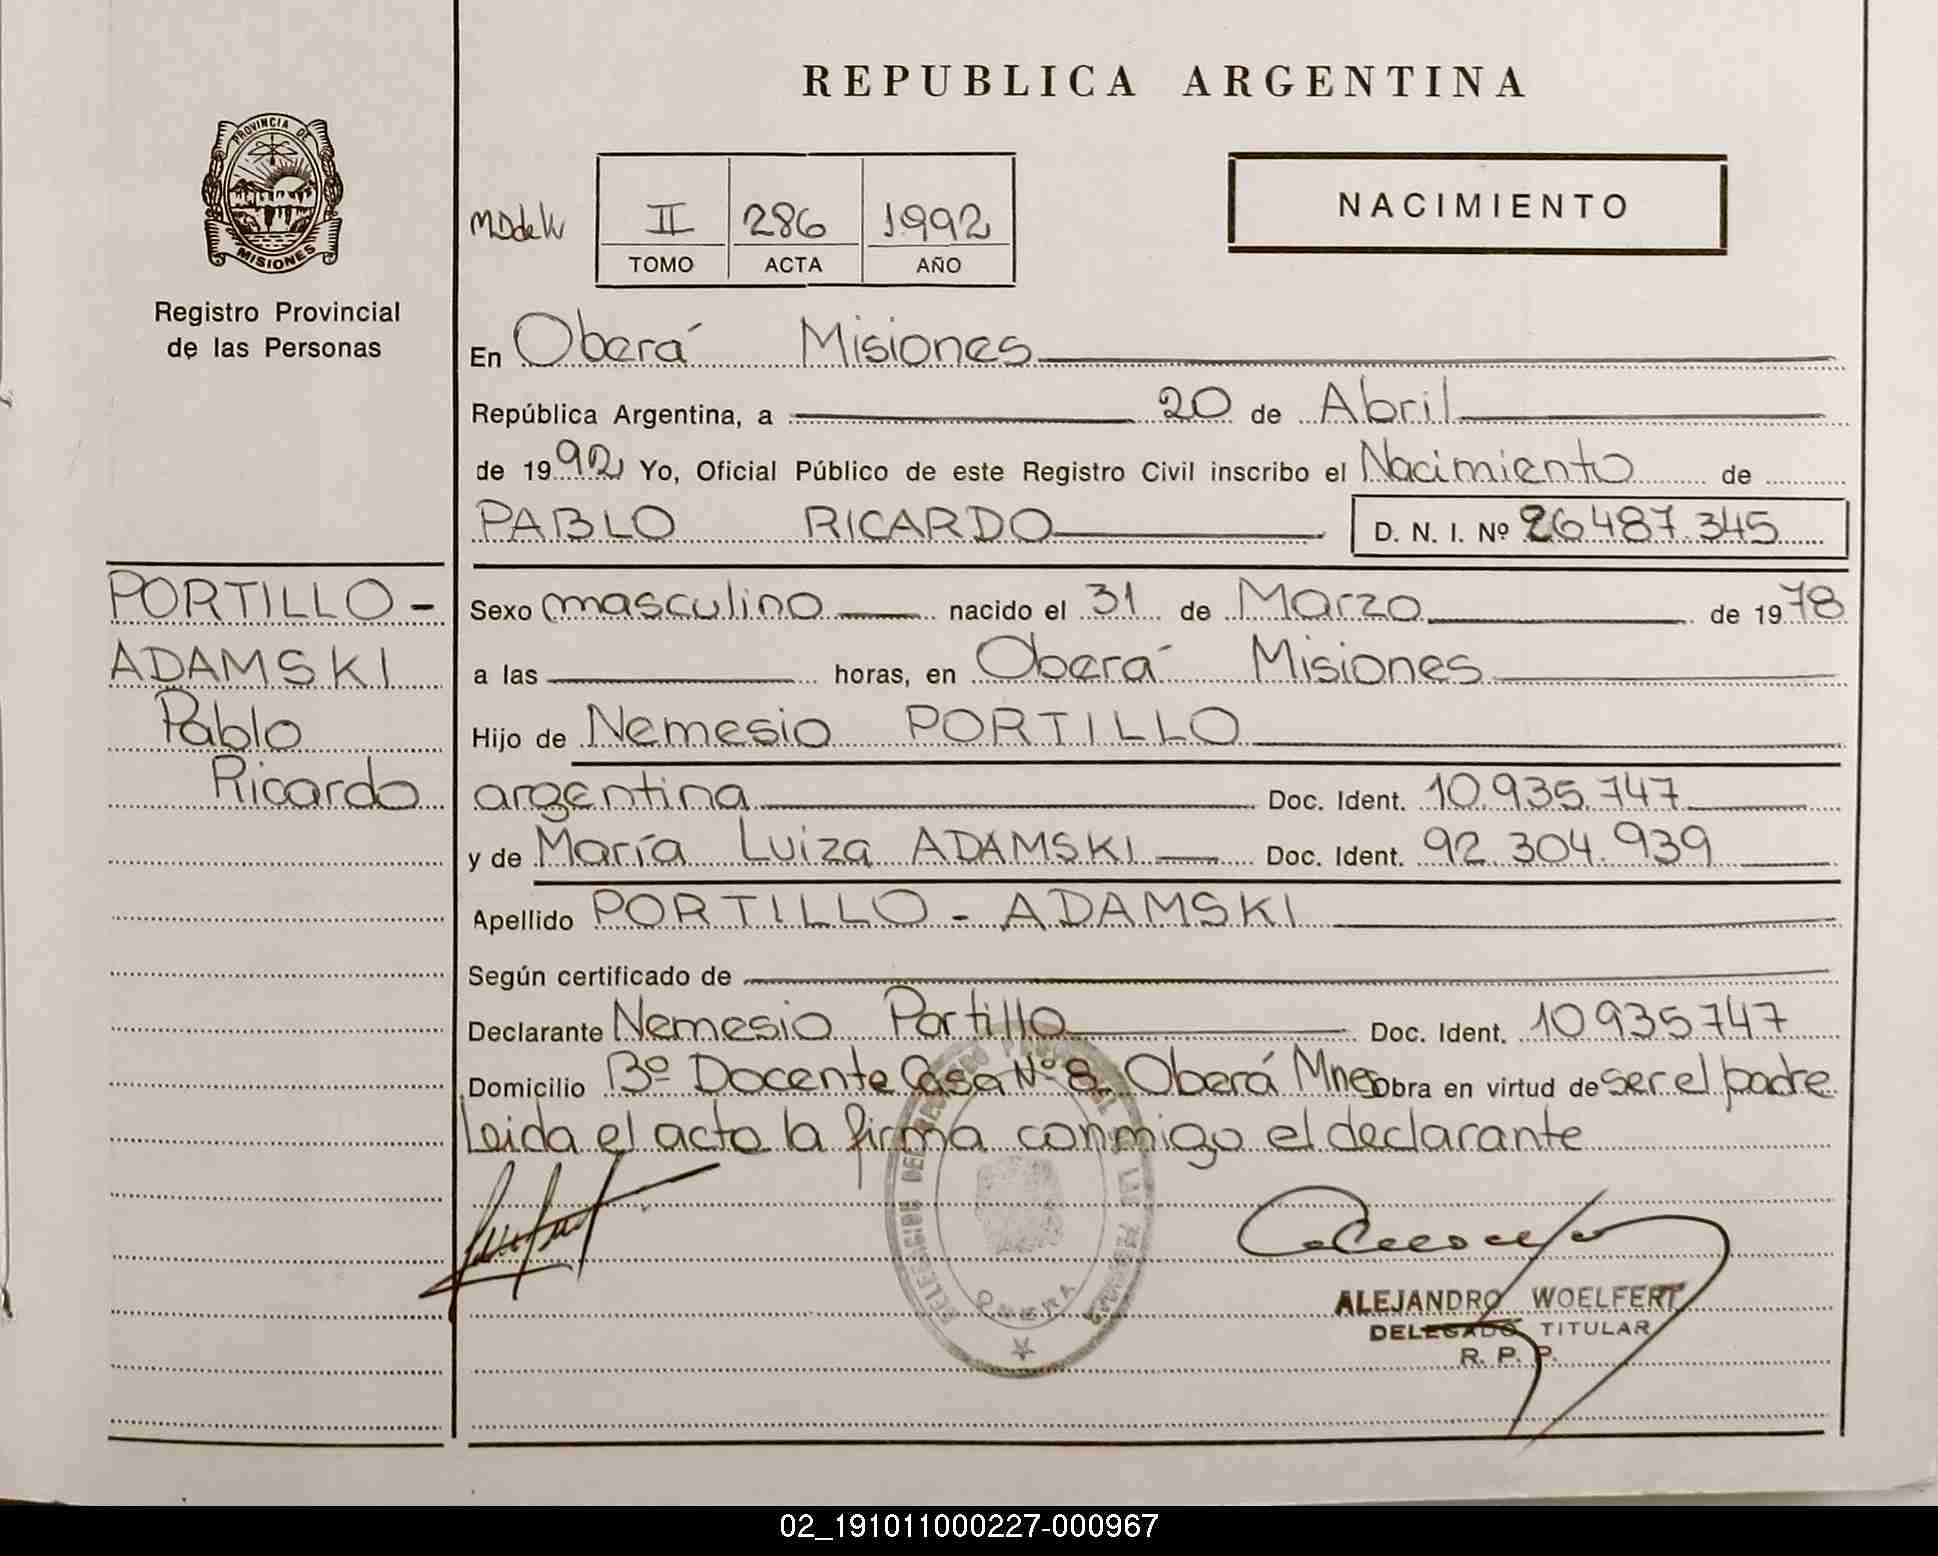 REPUBLICA ARGENTINA
PROVINCIA DE
MISIONES
Registro Provincial
de las Personas
II 286 1992
TOMO ACTA AÑO
NACIMIENTO
En Oberá Misiones
República Argentina, a 20 de Abril
de 1992 Yo, Oficial Público de este Registro Civil inscribo el Nacimiento de
PABLO RICARDO D. N. I. Nº 26487.345
PORTILLO -
ADAMSKI
Pablo
Ricardo
Sexo masculino nacido el 31 de Marzo de 1978
a las horas, en Oberá Misiones
Hijo de Nemesio PORTILLO
argentina Doc. Ident. 10.935.747
y de María Luiza ADAMSKI Doc. Ident. 92.304.939
Apellido PORTILLO - ADAMSKI
Según certificado de
Declarante Nemesio Portillo Doc. Ident. 10935747
Domicilio Bº Docente Casa Nº 8 Oberá Mnes obra en virtud de ser el padre
Leida el acto la firma conmigo el declarante
OBERA
ALEJANDRO WOELFERT
DELEGADO TITULAR
R. P. P.
02_191011000227-000967